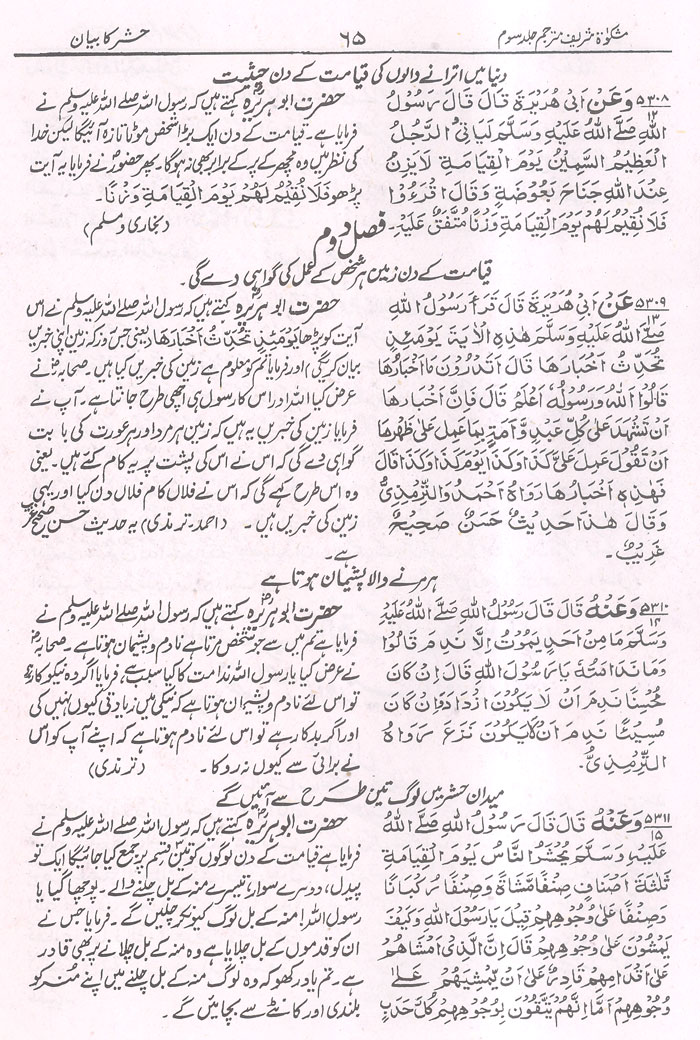 مشکوٰۃ شریف مترجم جلد سوم
۶۵
حشر کا بیان
دنیا میں اترانے والوں کی قیامت کے دن حیثیت
۵۳۰۸
۱۲
وَعَنْ اَبِیْ هُرَیْرَةَ قَالَ قَالَ رَسُوْلُ
اللّٰهِ صَلَّے اللّٰهُ عَلَیْهِ وَسَلَّمَ لَیَاْتِی الرَّجُلُ
الْعَظِیْمُ السَّمِیْنُ یَوْمَ الْقِیَامَةِ لَایَزِنُ
عِنْدَ اللّٰهِ جَنَاحَ بَعُوْضَةٍ وَقَالَ اقْرَءُوْا
فَلَا نُقِیْمُ لَهُمْ یَوْمَ الْقِیَامَةِ وَزْنًا مُتَّفَقٌ عَلَیْهِ۔
حضرت ابوہریرہؓ کہتے ہیں کہ رسول اللہ صلے اللہ علیہ وسلم نے
فرمایا ہے۔ قیامت کے دن ایک بڑا شخص موٹا تازہ آئیگا لیکن خدا
کی نظر میں وہ مچھر کے پر کے برابر بھی نہ ہوگا۔ پھر حضورؐ نے فرمایا یہ آیت
پڑھو فَلَا نُقِیْمُ لَهُمْ یَوْمَ الْقِیَامَةِ وَزْنًا۔
(بخاری و مسلم)
فصل دوم
قیامت کے دن زمین ہر شخص کے عمل کی گواہی دے گی۔
۵۳۰۹
۱۳
عَنْ اَبِیْ هُرَیْرَةَ قَالَ قَرَأَ رَسُوْلُ اللّٰهِ
صَلَّے اللّٰهُ عَلَیْهِ وَسَلَّمَ هٰذِهِ الْاٰیَةَ یَوْمَئِذٍ
تُحَدِّثُ اَخْبَارَهَا قَالَ اَتَدْرُوْنَ مَا اَخْبَارُهَا
قَالُوْا اللّٰهُ وَرَسُوْلُهٗ اَعْلَمُ قَالَ فَاِنَّ اَخْبَارَهَا
اَنْ تَشْهَدَ عَلٰی کُلِّ عَبْدٍ وَّاَمَةٍ بِمَا عَمِلَ عَلٰی ظَهْرِهَا
اَنْ تَقُوْلَ عَمِلَ عَلَیَّ کَذَا وَکَذَا یَوْمَ کَذَا وَکَذَا قَالَ
فَهٰذِهٖ اَخْبَارُهَا رَوَاهُ اَحْمَدُ وَالتِّرْمِذِیُّ
وَقَالَ هٰذَا حَدِیْثٌ حَسَنٌ صَحِیْحٌ
غَرِیْبٌ۔
حضرت ابوہریرہؓ کہتے ہیں کہ رسول اللہ صلے اللہ علیہ وسلم نے اس
آیت کو پڑھا یَوْمَئِذٍ تُحَدِّثُ اَخْبَارَهَا (یعنی جس روز کہ زمین اپنی خبریں
بیان کریگی) اور فرمایا تم کو معلوم ہے زمین کی خبریں کیا ہیں۔ صحابہؓ نے
عرض کیا اللہ اور اس کا رسول ہی اچھی طرح جانتا ہے۔ آپ نے
فرمایا زمین کی خبریں یہ ہیں کہ زمین ہر مرد اور ہر عورت کی بابت
گواہی دے گی کہ اس نے اس کی پشت پر یہ کام کئے ہیں۔ یعنی
وہ اس طرح کہے گی کہ اس نے فلاں کام فلاں دن کیا اور یہی
زمین کی خبریں ہیں۔ (احمد۔ ترمذی) یہ حدیث حسن صحیح غریب
ہے۔
ہر مرنے والا پشیمان ہوتا ہے
۵۳۱۰
۱۴
وَعَنْهُ قَالَ قَالَ رَسُوْلُ اللّٰهِ صَلَّے اللّٰهُ عَلَیْهِ
وَسَلَّمَ مَا مِنْ اَحَدٍ یَمُوْتُ اِلَّا نَدِمَ قَالُوْا
وَمَا نَدَامَتُهٗ یَا رَسُوْلَ اللّٰهِ قَالَ اِنْ کَانَ
مُحْسِنًا نَدِمَ اَنْ لَا یَکُوْنَ ازْدَادَ وَاِنْ کَانَ
مُسِیْئًا نَدِمَ اَنْ لَّایَکُوْنَ نَزَعَ رَوَاهُ
التِّرْمِذِیُّ۔
حضرت ابوہریرہؓ کہتے ہیں کہ رسول اللہ صلے اللہ علیہ وسلم نے
فرمایا ہے تم میں سے جو شخص مرتا ہے نادم و پشیمان ہوتا ہے۔ صحابہؓ
نے عرض کیا یا رسول اللہ ندامت کا کیا سبب ہے، فرمایا اگر وہ نیکوکار ہے
تو اس لئے نادم و پشیمان ہوتا ہے کہ نیکی میں زیادتی کیوں نہیں کی
اور اگر بدکار ہے تو اس لئے نادم ہوتا ہے کہ اپنے آپ کو اس
نے برائی سے کیوں نہ روکا۔ (ترمذی)
میدان حشر میں لوگ تین طرح سے آئیں گے
۵۳۱۱
۱۵
وَعَنْهُ قَالَ قَالَ رَسُوْلُ اللّٰهِ صَلَّے اللّٰهُ
عَلَیْهِ وَسَلَّمَ یُحْشَرُ النَّاسُ یَوْمَ الْقِیَامَةِ
ثَلٰثَةَ اَصْنَافٍ صِنْفًا مُّشَاةً وَصِنْفًا رُکْبَانًا
وَصِنْفًا عَلٰی وُجُوْهِهِمْ قِیْلَ یَا رَسُوْلَ اللّٰهِ وَکَیْفَ
یَمْشُوْنَ عَلٰی وُجُوْهِهِمْ قَالَ اِنَّ الَّذِیْ اَمْشَاهُمْ
عَلٰی اَقْدَامِهِمْ قَادِرٌ عَلٰی اَنْ یُّمْشِیَهُمْ عَلٰی
وُجُوْهِهِمْ اَمَّا اِنَّهُمْ یَتَّقُوْنَ بِوُجُوْهِهِمْ کُلَّ حَدَبٍ
حضرت ابوہریرہؓ کہتے ہیں کہ رسول اللہ صلے اللہ علیہ وسلم نے
فرمایا ہے قیامت کے دن لوگوں کو تین قسم پر جمع کیا جائیگا ایک تو
پیدل، دوسرے سوار، تیسرے منہ کے بل چلنے والے۔ پوچھا گیا یا
رسول اللہ! منہ کے بل لوگ کیونکر چلیں گے۔ فرمایا جس نے
ان کو قدموں کے بل چلایا ہے وہ منہ کے بل چلانے پر بھی قادر
ہے۔ تم یاد رکھو کہ وہ لوگ منہ کے بل چلنے میں اپنے منہ کو
بلندی اور کانٹے سے بچائیں گے۔